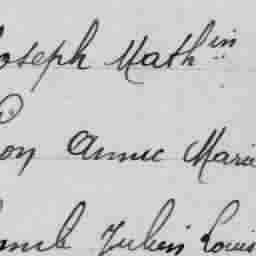 Joseph Math in
on Annie Marie
Julien Louis